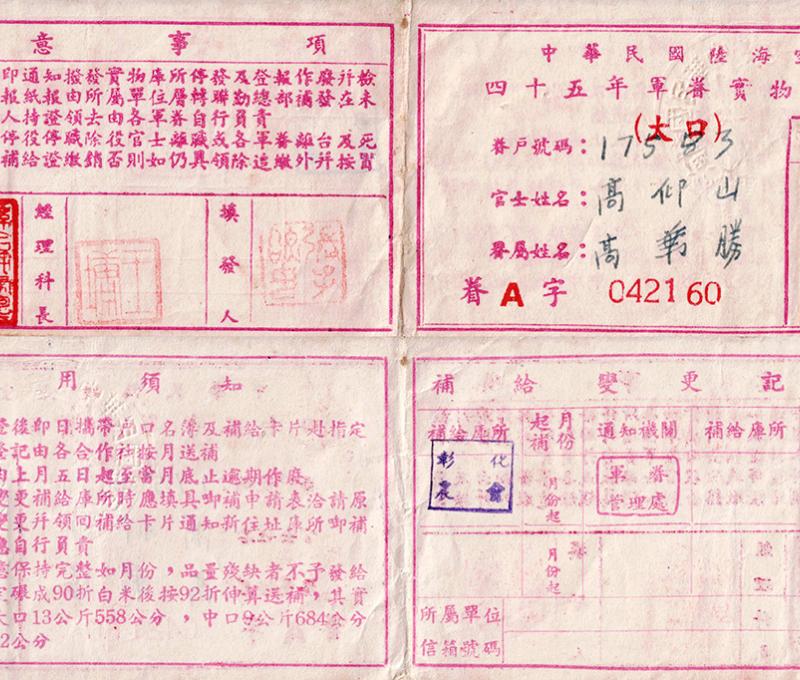 意事項
印通知撥發實物庫所停發及登報作廢幷檢
報紙報由所屬單位層轉聯勤總部補發在未
人持證領去由各軍眷自行員責
停役停職除役官士離職或各軍眷離台及死
補給證繳銷否則如仍具領除追繳外幷按冒
經理科長
填發人
中華民國陸海空
四十五年軍眷實物
(大口)
眷戶號碼：17553
官士姓名：高仰山
眷屬姓名：高勝
眷A字 042160
用須知
後卽日攜帶戶口名簿及補給卡片赴指定
登記由各合作社按月送補
由上月五日起至當月底止逾期作廢
變更補給庫所時應填具啣補申請表洽請原
變更幷領回補給卡片通知新住址庫所啣補
應自行員責
應保持完整如月份，品量殘缺者不予發給
碾成90折白米後按92折伸算送補，其實
大口13公斤558公分，中口9公斤684公分
2公分
補給變更記
補給庫所 起補月份 通知機關 補給庫所
彰化農會
月份起
軍眷管理處
月份起
所屬單位
信箱號碼